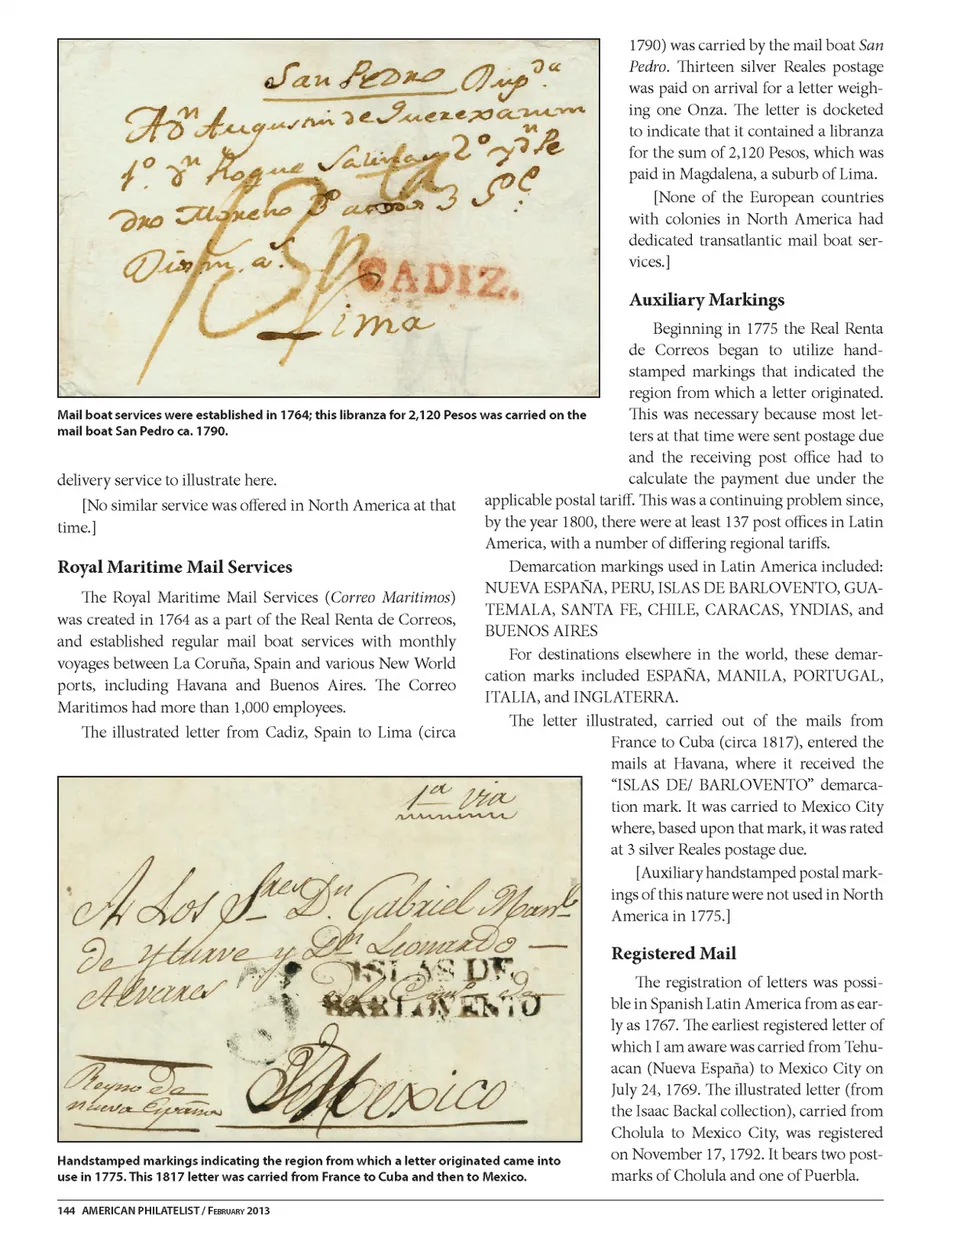 San Pedro Dup.da
A Dn Augustin de Querexazu en
1º. Dn Roque Salinas 2º Dn Pe
dro Moreno
Lima
CADIZ.
Mail boat services were established in 1764; this libranza for 2,120 Pesos was carried on the
mail boat San Pedro ca. 1790.
delivery service to illustrate here.
[No similar service was offered in North America at that
time.]
Royal Maritime Mail Services
The Royal Maritime Mail Services (Correo Maritimos)
was created in 1764 as a part of the Real Renta de Correos,
and established regular mail boat services with monthly
voyages between La Coruña, Spain and various New World
ports, including Havana and Buenos Aires. The Correo
Maritimos had more than 1,000 employees.
The illustrated letter from Cadiz, Spain to Lima (circa
1ª via
A Los Sres Dn. Gabriel Manl
de Yturve y Dn Leonardo
Alvares
ISLAS DE
BARLOVENTO
3
Reyno de
nueva España
Mexico
Handstamped markings indicating the region from which a letter originated came into
use in 1775. This 1817 letter was carried from France to Cuba and then to Mexico.
1790) was carried by the mail boat San
Pedro. Thirteen silver Reales postage
was paid on arrival for a letter weigh-
ing one Onza. The letter is docketed
to indicate that it contained a libranza
for the sum of 2,120 Pesos, which was
paid in Magdalena, a suburb of Lima.
[None of the European countries
with colonies in North America had
dedicated transatlantic mail boat ser-
vices.]
Auxiliary Markings
Beginning in 1775 the Real Renta
de Correos began to utilize hand-
stamped markings that indicated the
region from which a letter originated.
This was necessary because most let-
ters at that time were sent postage due
and the receiving post office had to
calculate the payment due under the
applicable postal tariff. This was a continuing problem since,
by the year 1800, there were at least 137 post offices in Latin
America, with a number of differing regional tariffs.
Demarcation markings used in Latin America included:
NUEVA ESPAÑA, PERU, ISLAS DE BARLOVENTO, GUA-
TEMALA, SANTA FE, CHILE, CARACAS, YNDIAS, and
BUENOS AIRES
For destinations elsewhere in the world, these demar-
cation marks included ESPAÑA, MANILA, PORTUGAL,
ITALIA, and INGLATERRA.
The letter illustrated, carried out of the mails from
France to Cuba (circa 1817), entered the
mails at Havana, where it received the
“ISLAS DE/ BARLOVENTO” demarca-
tion mark. It was carried to Mexico City
where, based upon that mark, it was rated
at 3 silver Reales postage due.
[Auxiliary handstamped postal mark-
ings of this nature were not used in North
America in 1775.]
Registered Mail
The registration of letters was possi-
ble in Spanish Latin America from as ear-
ly as 1767. The earliest registered letter of
which I am aware was carried from Tehu-
acan (Nueva España) to Mexico City on
July 24, 1769. The illustrated letter (from
the Isaac Backal collection), carried from
Cholula to Mexico City, was registered
on November 17, 1792. It bears two post-
marks of Cholula and one of Puerbla.
144 AMERICAN PHILATELIST / FEBRUARY 2013